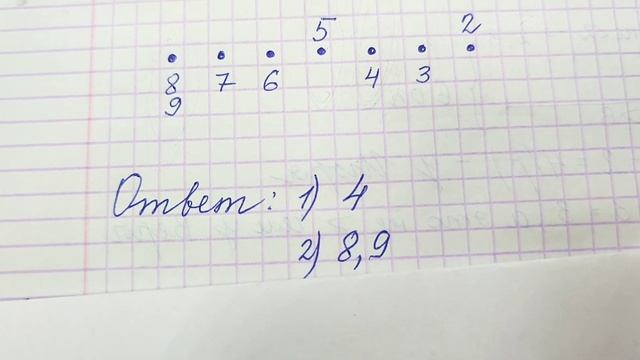 5 2
8 7 6 4 3
9
Ответ: 1) 4
2) 8,9